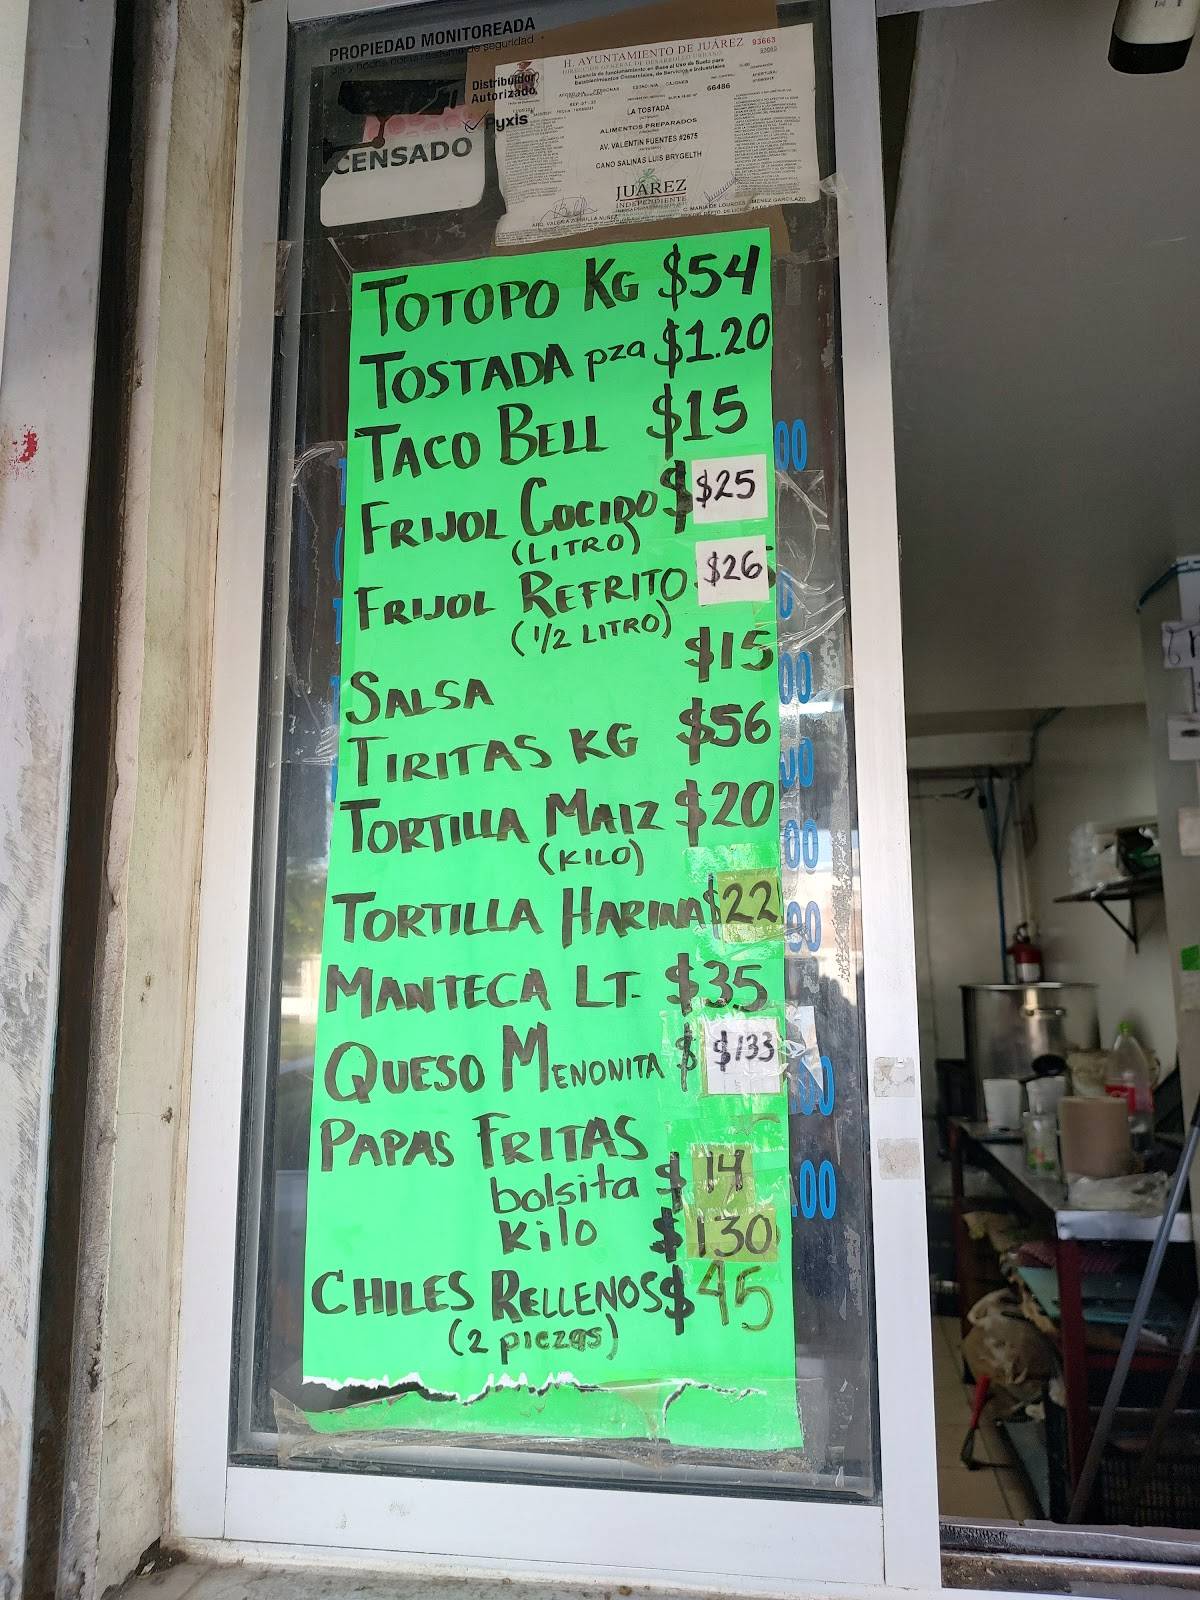 PROPIEDAD MONITOREADA
Distribuidor
Autorizado
Pyxis
CENSADO
H. AYUNTAMIENTO DE JUÁREZ 93663
DIRECCION GENERAL DE DESARROLLO URBANO
Licencia de funcionamiento en Base al Uso de Suelo para
Establecimientos Comerciales, de Servicios e Industriales
66486
LA TOSTADA
ALIMENTOS PREPARADOS
AV. VALENTIN FUENTES #2675
CANO SALINAS LUIS BRYGELTH
JUÁREZ
INDEPENDIENTE
TOTOPO KG $54
TOSTADA pza $1.20
TACO BELL $15
FRIJOL COCIDO $ $25
(LITRO)
FRIJOL REFRITO $26
(1/2 LITRO)
SALSA $15
TIRITAS KG $56
TORTILLA MAIZ $20
(KILO)
TORTILLA HARINA $22
MANTECA LT. $35
QUESO MENONITA $ $133
PAPAS FRITAS
bolsita $14
Kilo $130
CHILES RELLENOS $45
(2 piezas)